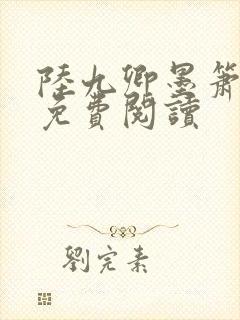 陸九卿墨簫
免費閱讀
劉完素